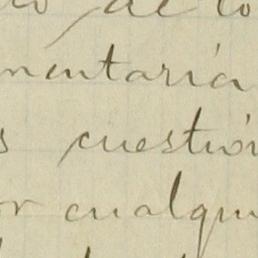 de lo
mentaria
s cuestión
or cualqui